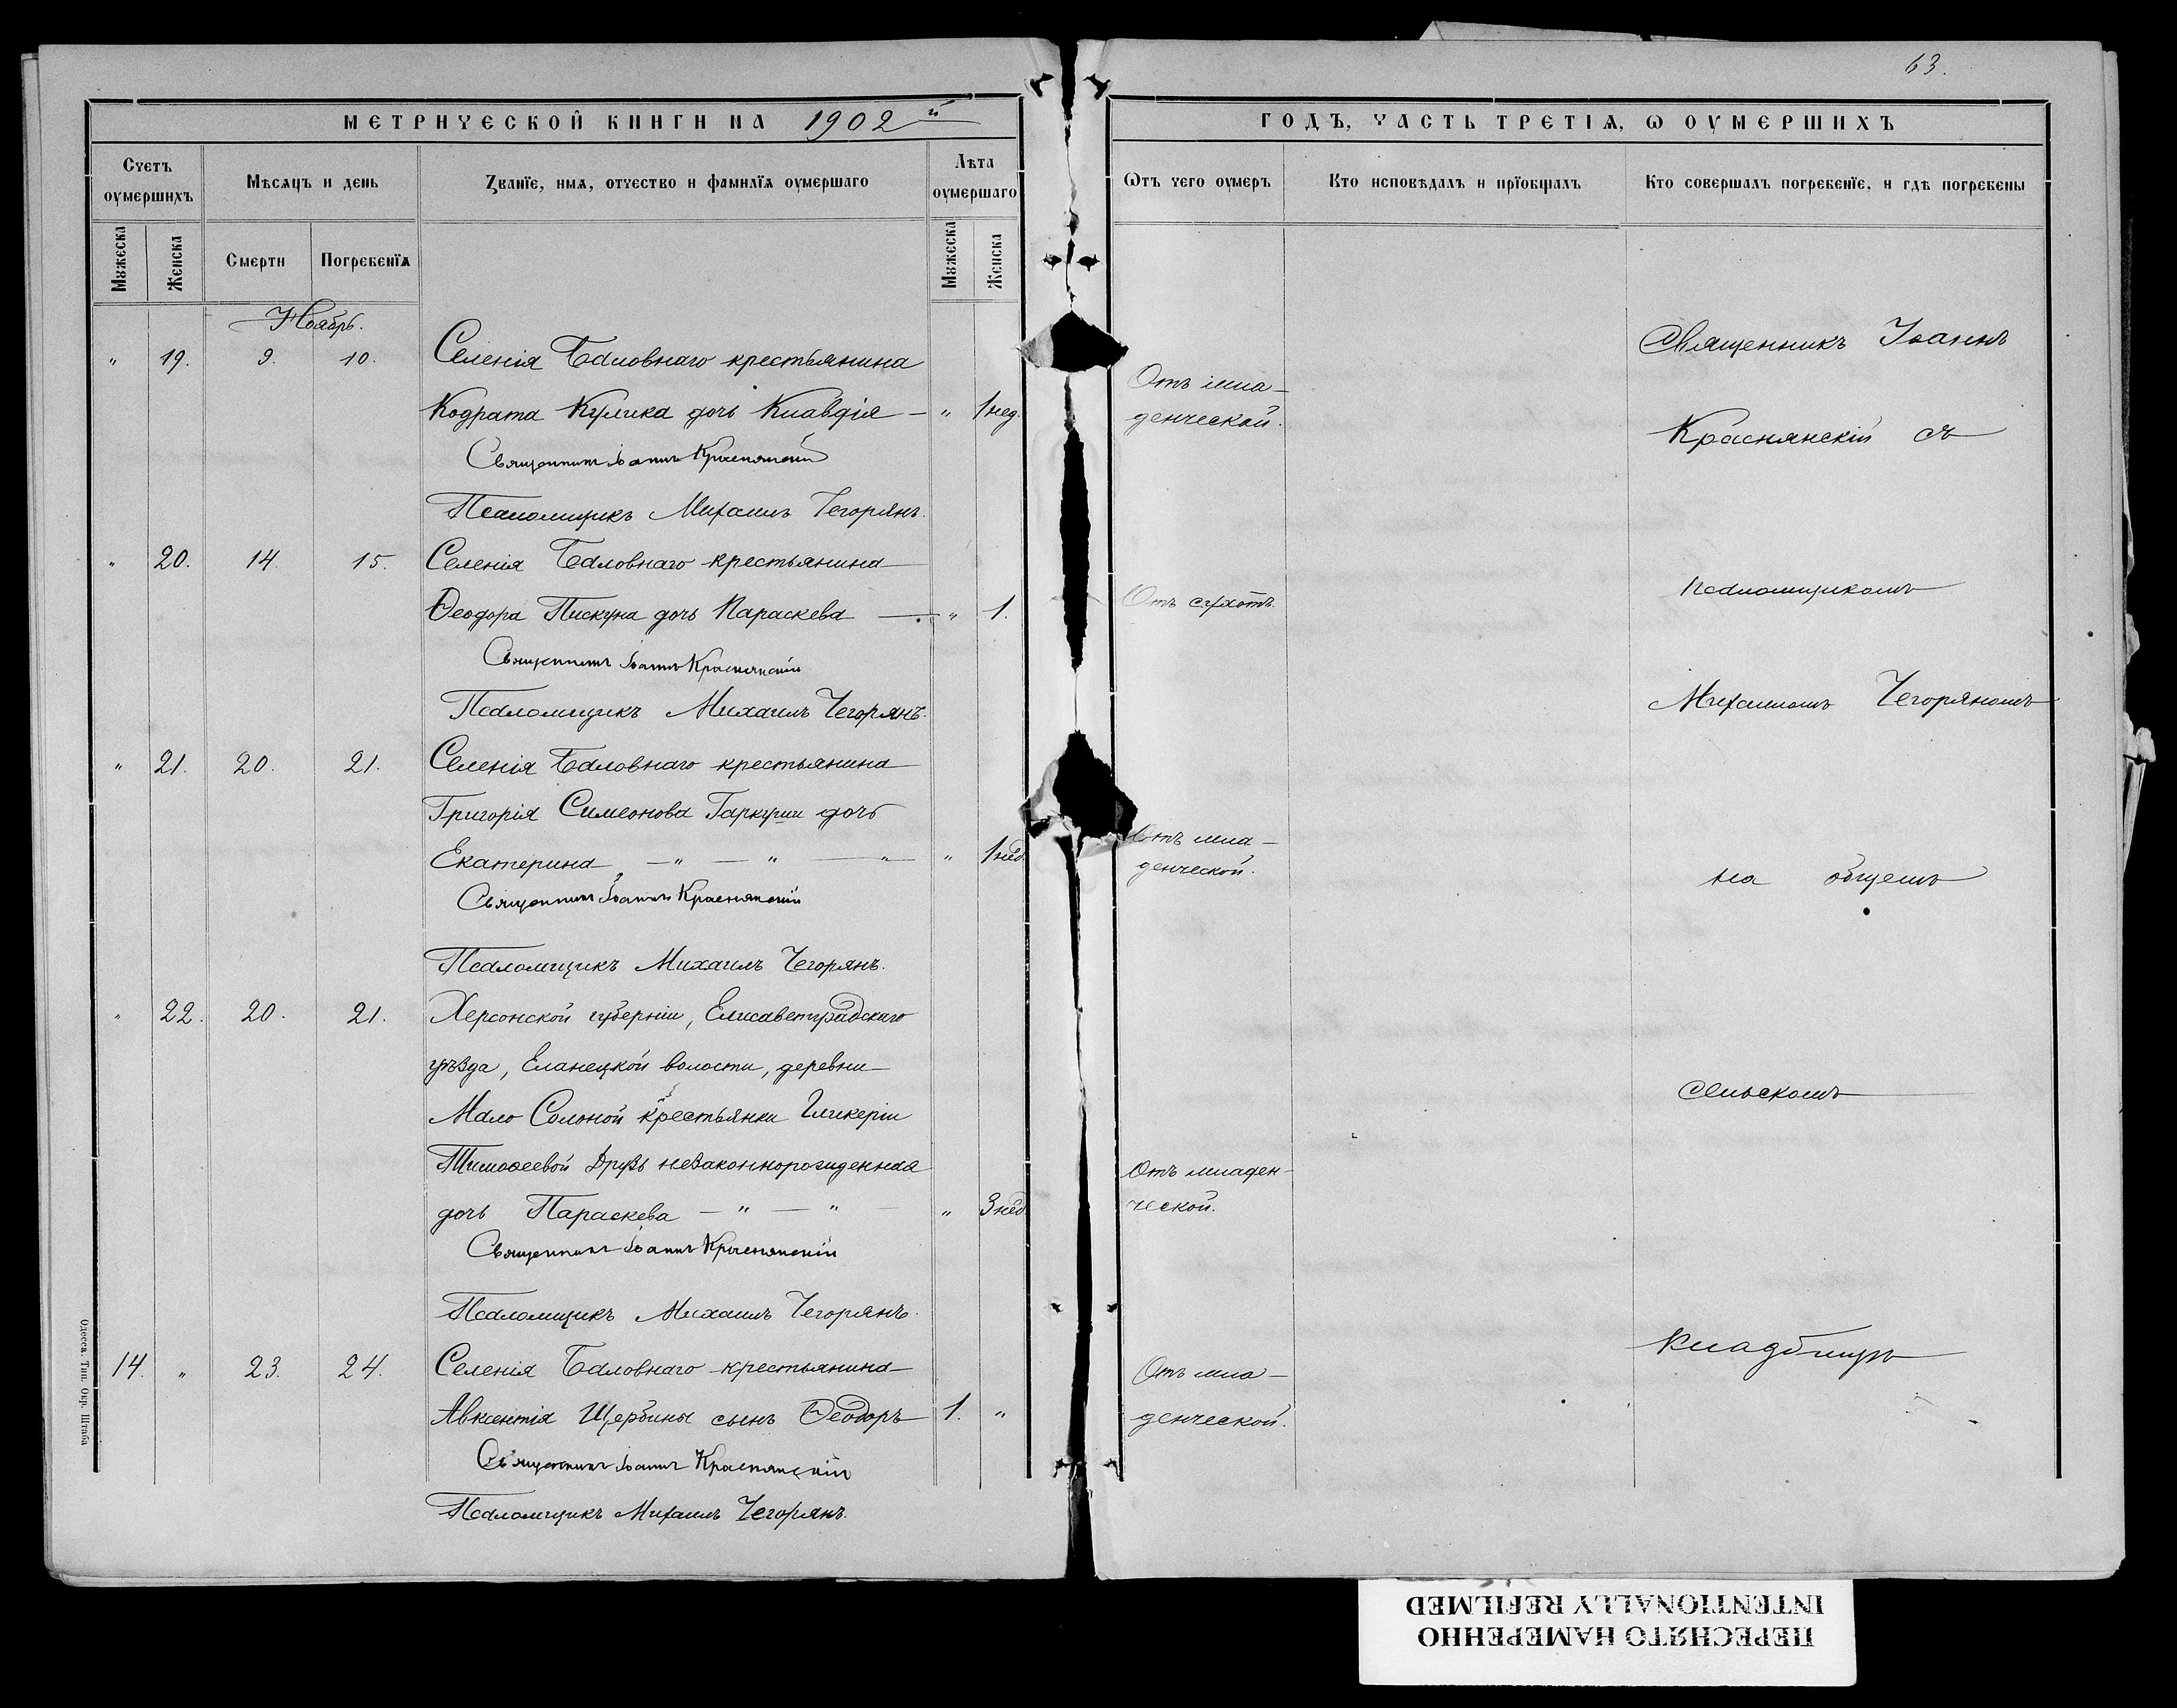 63.
МЕТРИЧЕСКОЙ КНИГИ НА 1902й
ГОДЪ, ЧАСТЬ ТРЕТІѦ, Ѡ ОУМЕРШИХЪ
Счетъ оумершихъ
Мѣсяцъ и день
Званїе, имѧ, отчество и фамилїѧ оумершаго
Лѣта оумершаго
Ѿтъ чего оумеръ
Кто исповѣдалъ и прїобщалъ
Кто совершалъ погребенїе, и гдѣ погребены
Мужеска
Женска
Смерти
Погребенїѧ
Мужеска
Женска
Ноябрь.
" 19. 9. 10. Селенія Баловнаго крестьянина
Кодрата Кулика дочь Клавдія – " 1 нед. Отъ мла-
денческой.
Священникъ Іоаннъ Краснянскій
Псаломщикъ Михаилъ Чегорянъ.
" 20. 14. 15. Селенія Баловнаго крестьянина
Ѳеодора Пискуна дочь Параскева — " 1. Отъ сухотъ.
Священникъ Іоаннъ Краснянскій
Псаломщикъ Михаилъ Чегорянъ.
" 21. 20. 21. Селенія Баловнаго крестьянина
Григорія Симеонова Гаркуши дочь
Екатерина — " — " — " " 1 нед. Отъ мла-
денческой.
Священникъ Іоаннъ Краснянскій
Псаломщикъ Михаилъ Чегорянъ.
" 22. 20. 21. Херсонской губерніи, Елисаветградскаго
уѣзда, Еланецкой волости, деревни
Мало Солоной крестьянки Гликеріи
Тимоѳеевой Друзь незаконнорожденная
дочь Параскева — " — " — " 3 нед. Отъ младен-
ческой.
Священникъ Іоаннъ Краснянскій
Псаломщикъ Михаилъ Чегорянъ.
14. " 23. 24. Селенія Баловнаго крестьянина
Авксентія Щербины сынъ Ѳеодоръ 1. " Отъ мла-
денческой.
Священникъ Іоаннъ Краснянскій
Псаломщикъ Михаилъ Чегорянъ.
Священникъ Іоаннъ
Краснянскій съ
псаломщикомъ
Михаиломъ Чегоряномъ
на общемъ
сельскомъ
кладбищѣ
Одесса. Тип. Окр. Штаба
ПЕРЕСНЯТО НАМЕРЕННО
INTENTIONALLY REFILMED